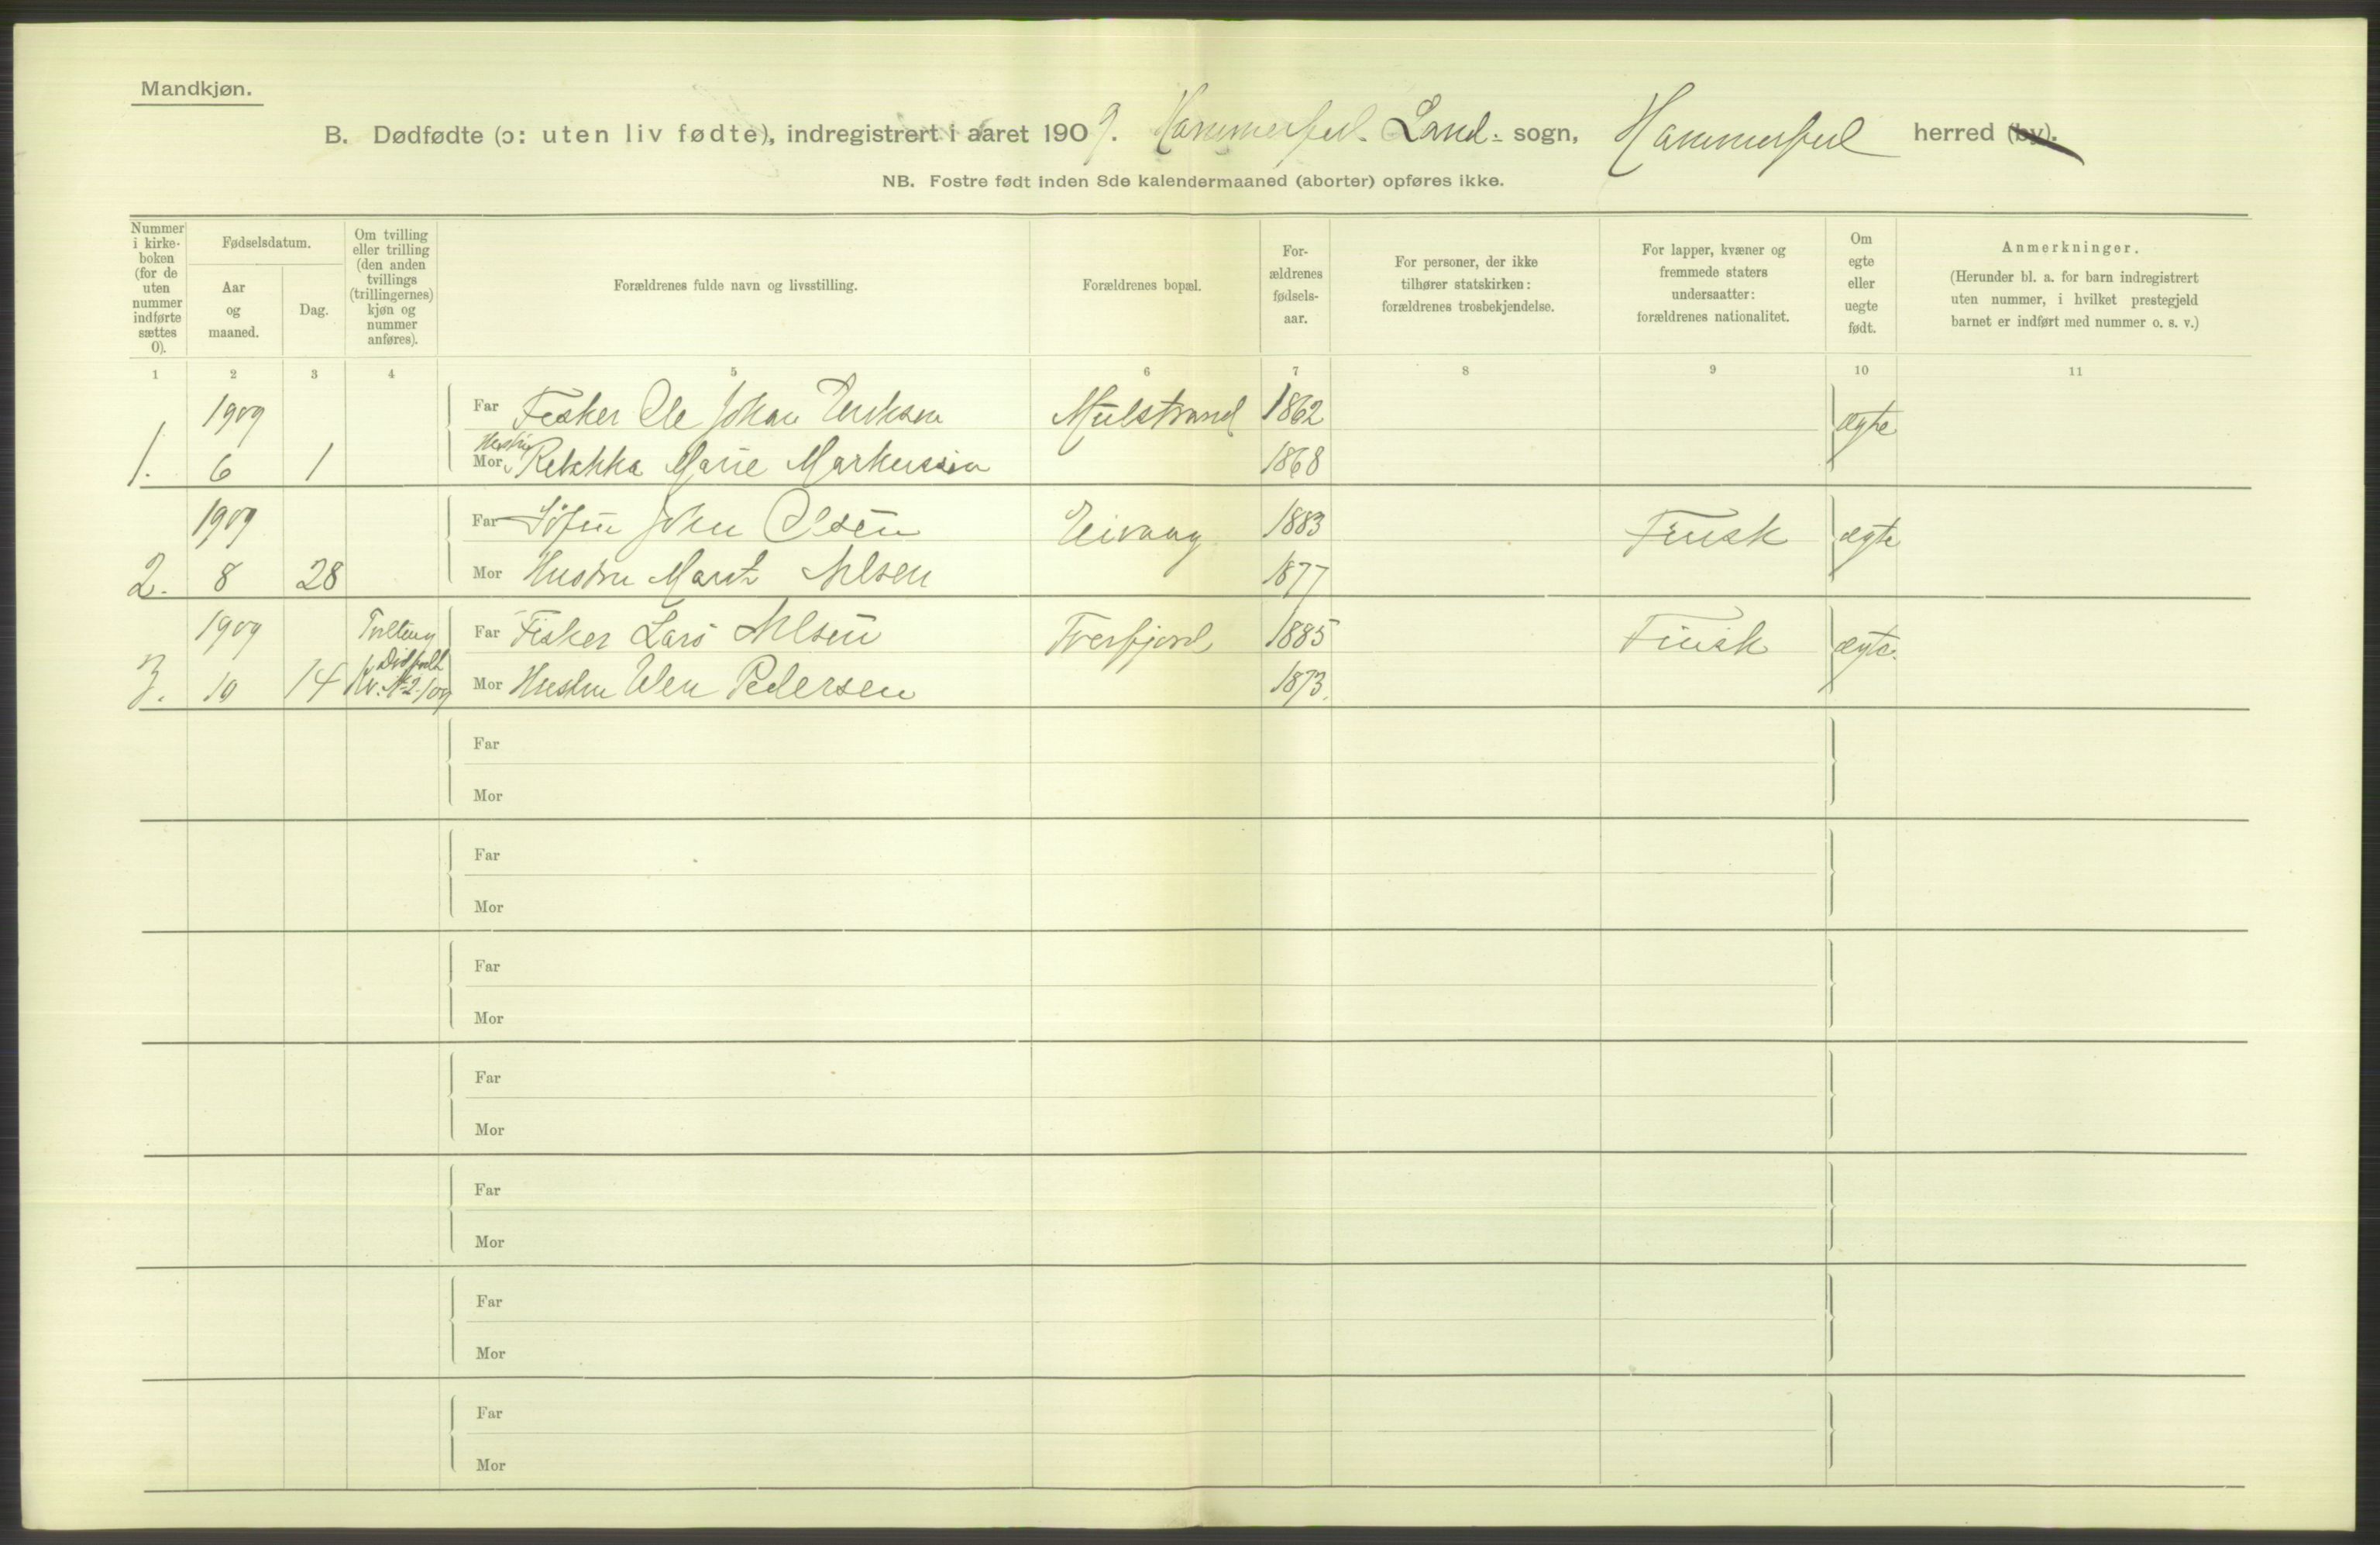 Mandkjøn.
B. Dødfødte (ɔ: uten liv fødte), indregistrert i aaret 1909. Hammerfest Land- sogn, Hammerfest herred (by).
NB. Fostre født inden 8de kalendermaaned (aborter) opføres ikke.
Nummer
i kirke-
boken
(for de
uten
nummer
indførte
sættes
0).
Fødselsdatum.
Aar
og
maaned.
Dag.
Om tvilling
eller trilling
(den anden
tvillings
(trillingernes)
kjøn og
nummer
anføres).
Forældrenes fulde navn og livsstilling.
Forældrenes bopæl.
For-
ældrenes
fødsels-
aar.
For personer, der ikke
tilhører statskirken:
forældrenes trosbekjendelse.
For lapper, kvæner og
fremmede staters
undersaatter:
forældrenes nationalitet.
Om
egte
eller
uegte
født.
Anmerkninger.
(Herunder bl. a. for barn indregistrert
uten nummer, i hvilket prestegjeld
barnet er indført med nummer o. s. v.)
1 2 3 4 5 6 7 8 9 10 11
1909 Far Fisker Ole Johan Eriksen Mylstrand 1862 ægte
Hustru
1. 6 1 Mor Rebekka Marie Markussen 1868
1909 Far John Olsen Eivaag 1883 Finsk ægte
2. 8 28 Mor Hustru Marit Nilsen 1877
1909 Tvilling Far Fisker Lars Nilsen Tverfjord 1885 Finsk ægte
Dødfødt
3. 10 14 Kv. No 2 - 109 Mor Hustru Elen Pedersen 1873.
Far
Mor
Far
Mor
Far
Mor
Far
Mor
Far
Mor
Far
Mor
Far
Mor